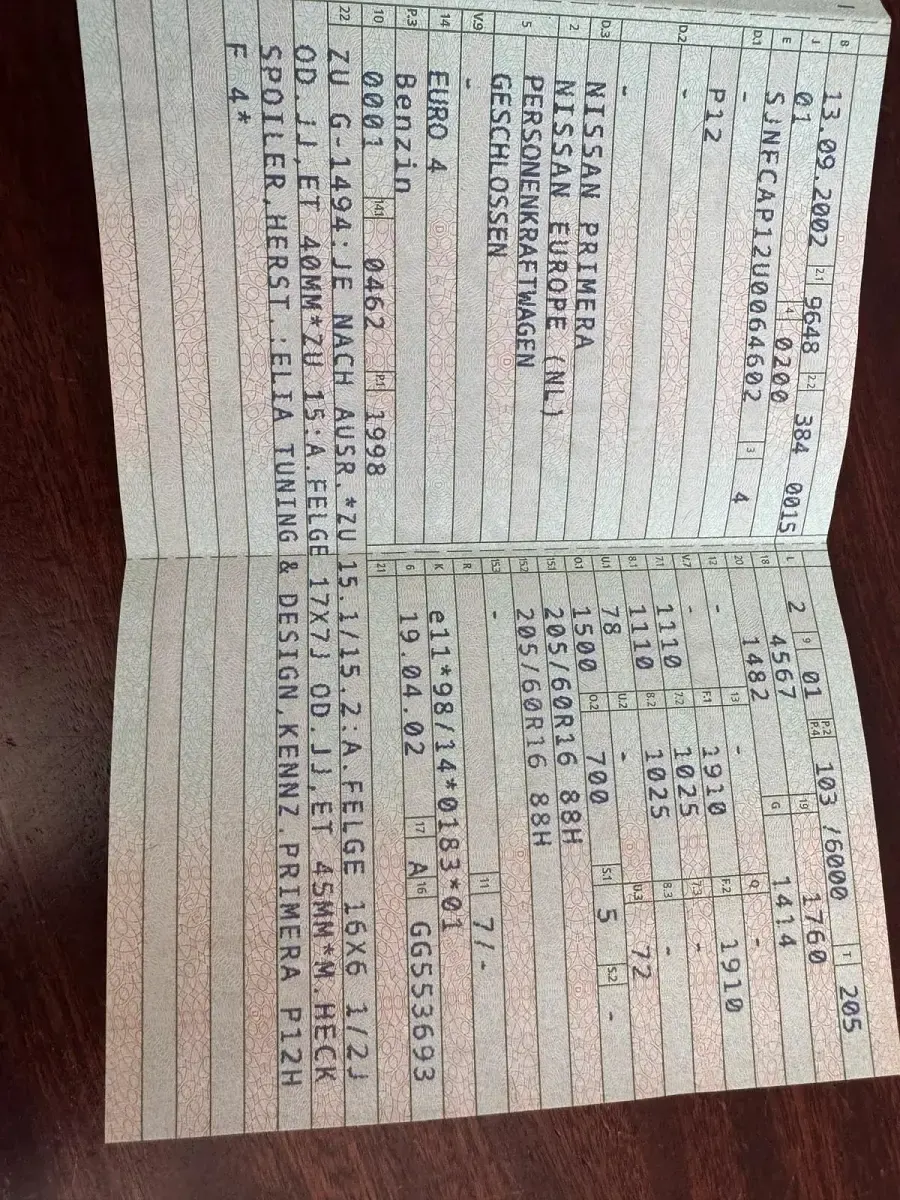 B 13.09.2002 2.1 9648 2.2 384 0015
J 01 4 0200
E SJNFCAP12U0064602 3 4
D.1 -
P12
D.2 -
-
D.3 NISSAN PRIMERA
2 NISSAN EUROPE (NL)
5 PERSONENKRAFTWAGEN
GESCHLOSSEN
V.9 -
14 EURO 4
P.3 Benzin
10 0001 14.1 0462 P.1 1998
L 2 9 01 P.2 P.4 103 /6000 T 205
18 4567 19 1760
20 1482 G 1414
12 - 13 - Q -
V.7 - F.1 1910 F.2 1910
7.1 1110 7.2 1025 7.3 -
8.1 1110 8.2 1025 8.3 -
U.1 78 U.2 - U.3 72
O.1 1500 O.2 700 S.1 5 S.2 -
15.1 205/60R16 88H
15.2 205/60R16 88H
15.3 -
R 11 7/-
K e11*98/14*0183*01
6 19.04.02 17 A 16 GG553693
21
22 ZU G-1494:JE NACH AUSR.*ZU 15.1/15.2:A.FELGE 16X6 1/2J
OD.JJ,ET 40MM*ZU 15:A.FELGE 17X7J OD.JJ,ET 45MM*M.HECK
SPOILER,HERST.:ELIA TUNING & DESIGN,KENNZ.PRIMERA P12H
F 4*